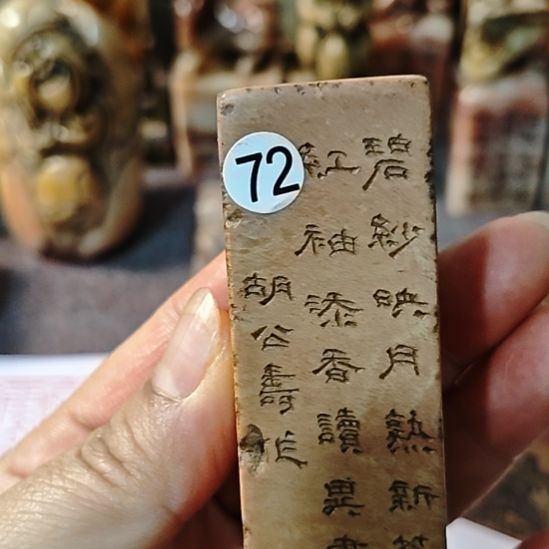 72
碧紗映月熱新
紅袖添香讀異
胡公壽作